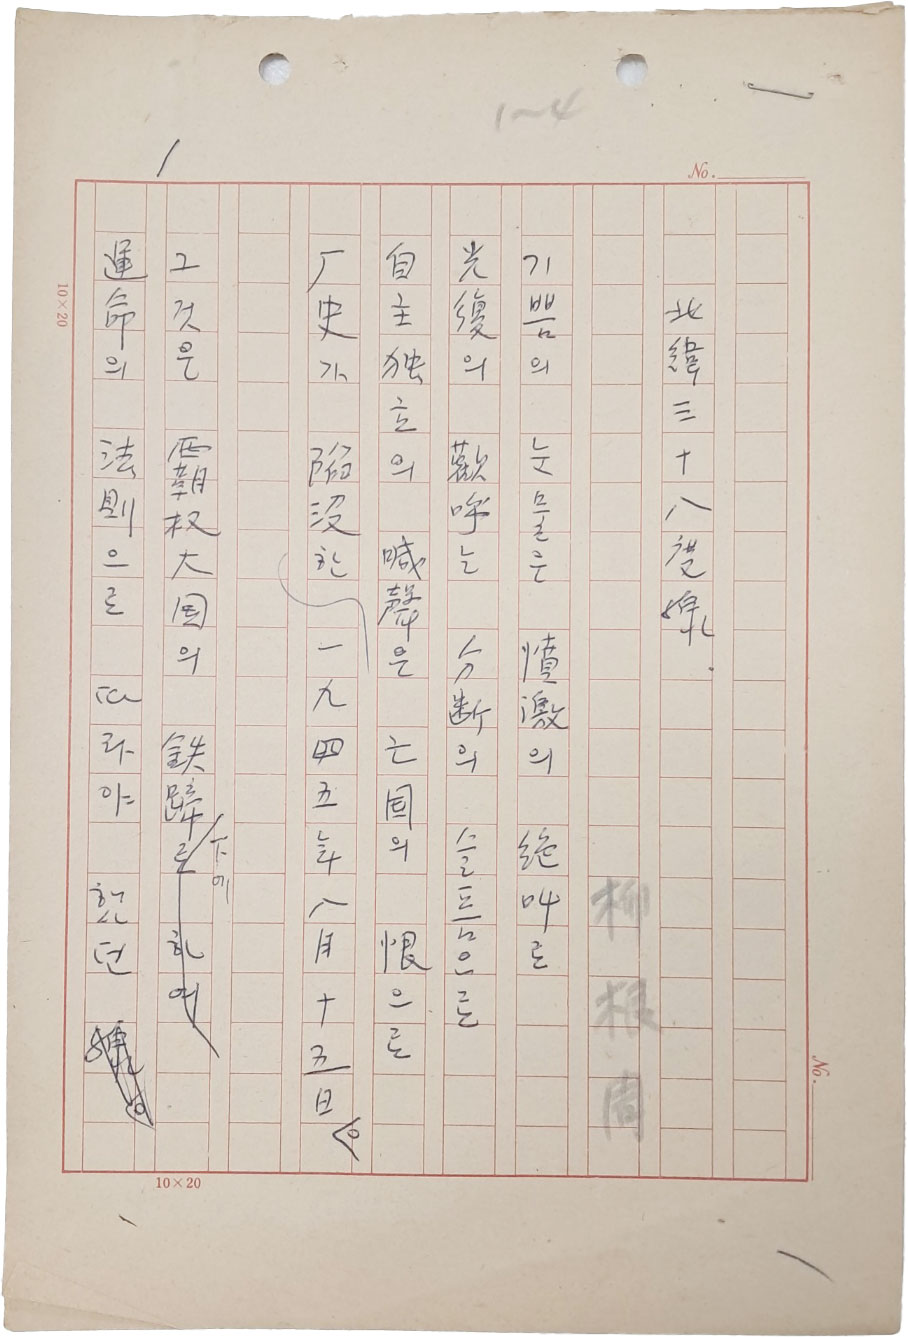 1~4
No.
北緯三十八度線.
柳根周
기쁨의 눈물은 憤激의 絶叫로
光復의 歡呼는 分断의 슬픔으로
自主独立의 喊聲은 亡国의 恨으로
厂史가 陷没한 一九四五年八月十五日
그것은 覇权大国의 鉄蹄로 하여
下에
運命의 法則으로 따라야 했던
10×20
10×20
No.